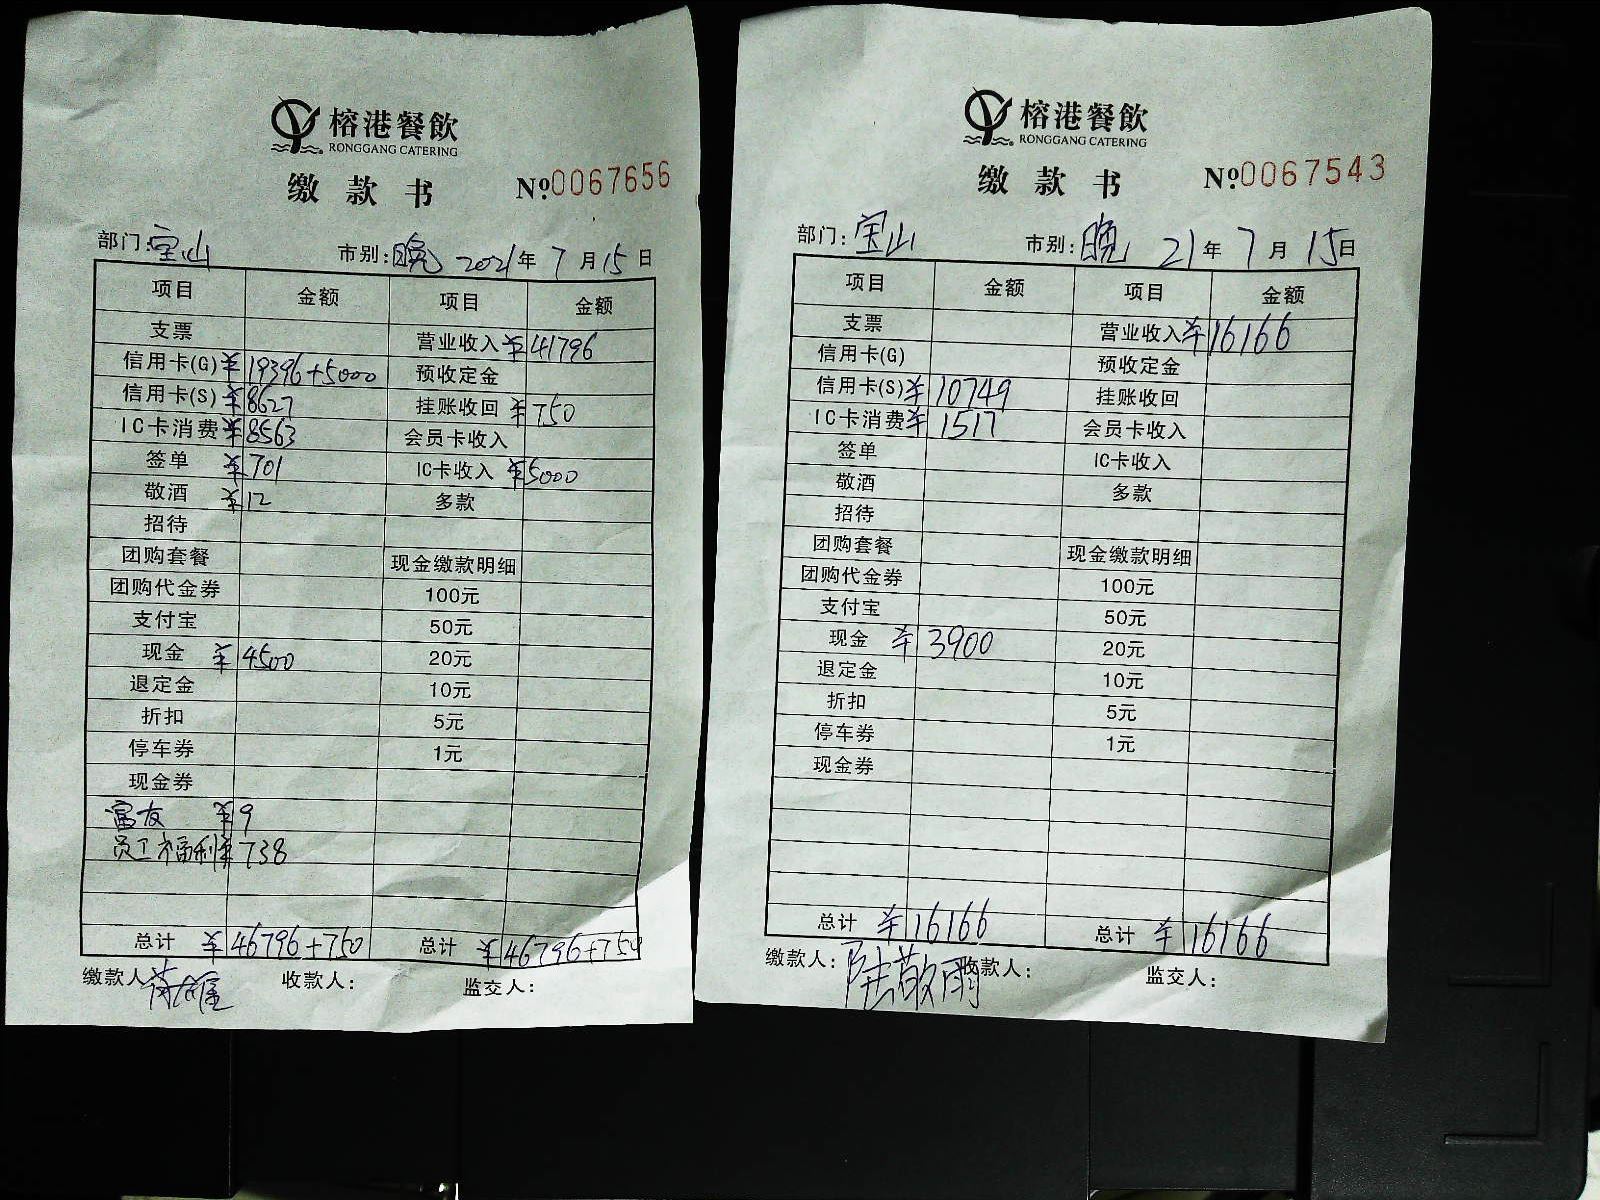 榕港餐飲
RONGGANG CATERING
缴款书 №0067656
部门:宝山 市别:晚 2021年7月15日
项目 金额 项目 金额
支票 营业收入 ¥41796
信用卡(G) ¥19396+5000 预收定金
信用卡(S) ¥8627 挂账收回 ¥750
IC卡消费 ¥8563 会员卡收入
签单 ¥701 IC卡收入 ¥5000
敬酒 ¥12 多款
招待
团购套餐 现金缴款明细
团购代金券 100元
支付宝 50元
现金 ¥4500 20元
退定金 10元
折扣 5元
停车券 1元
现金券
富友 ¥9
员工福利 ¥738
总计 ¥46796+750 总计 ¥46796+750
缴款人: 收款人: 监交人:
榕港餐飲
RONGGANG CATERING
缴款书 №0067543
部门:宝山 市别:晚 21年7月15日
项目 金额 项目 金额
支票 营业收入 ¥16166
信用卡(G) 预收定金
信用卡(S) ¥10749 挂账收回
IC卡消费 ¥1517 会员卡收入
签单 IC卡收入
敬酒 多款
招待
团购套餐 现金缴款明细
团购代金券 100元
支付宝 50元
现金 ¥3900 20元
退定金 10元
折扣 5元
停车券 1元
现金券
总计 ¥16166 总计 ¥16166
缴款人:陆敬雨 收款人: 监交人: